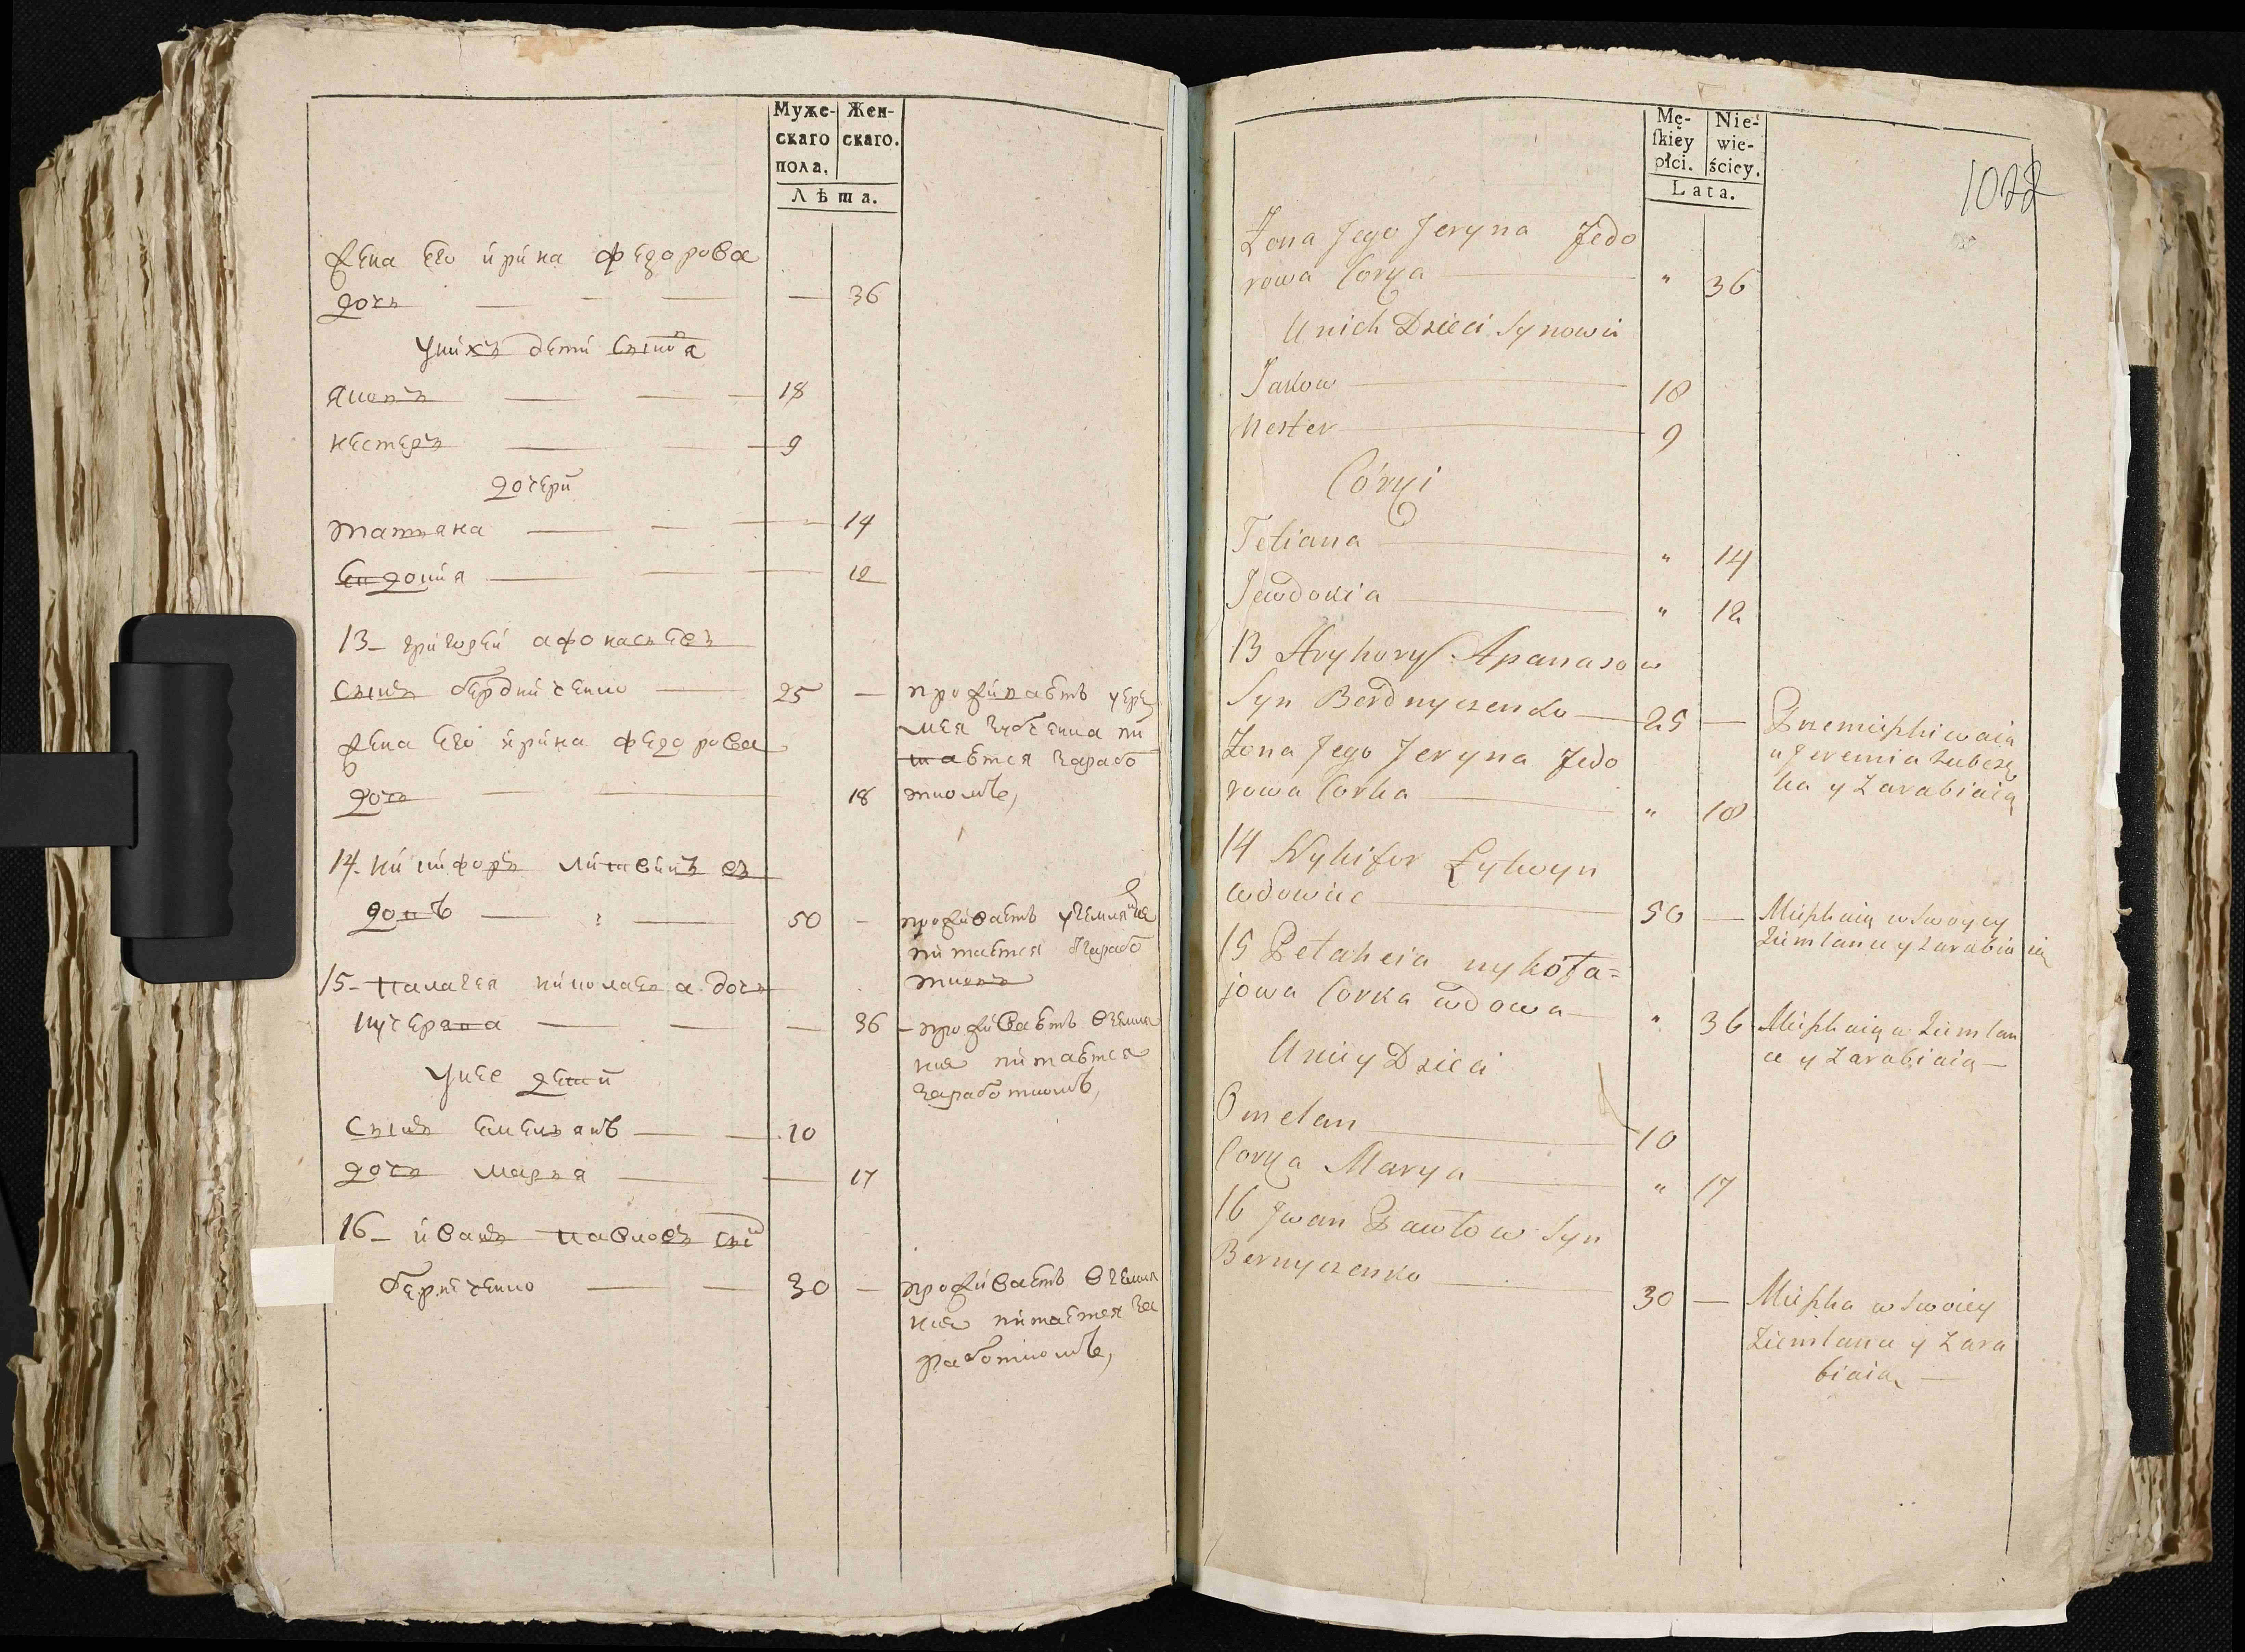 Муже-
скаго
пола.
Жен-
скаго.
Лѣта.
жена его ирина федорова
дочь — — 36
у нихъ дети сынова
яковъ — 18
нестеръ — 9
дочери
татьяна — 14
евдокия — 12
13 – григорей афонасьевъ
сынъ бердниченко — 25 —
проживаетъ у ере
мея зубченка пи
тается зарабо
ткомъ,
жена его ирина федорова
дочь — 18
14. никифоръ литвинъ в
довъ — 50 —
проживаетъ у землянке
питается зарабо
ткомъ
15 – палагея николаева дочь
— 36
– проживаетъ в земля
нке питается
заработкомъ,
у нее дети
сынъ емельянъ — 10
дочь марья — 17
16 – иванъ павловъ сы
берниченко — 30 —
проживаетъ в земля
нке питается за
работкомъ,
Mę-
ſkiey
płci.
Nie-
wie-
ściey.
Lata.
1022
Żona Jego Jeryna Fedo
rowa Corka — " 36
U nich Dzieci Synowie
Jakow — 18
Nester — 9
Córki
Tetiana — " 14
Jewdokia — " 12
13 Hryhory Apanasow
Syn Berdnyczenko — 25 —
u Jeremia Zubcze
ka y Zarabiaią
Żona Jego Jeryna Fedo
rowa Corka — " 18
14 Nykifor Łytwyn
wdowiec — 50 —
Mieszkaią w Swoyey
Ziemlance y Zarabiaią
15 Pelaheia nykoła=
jowa Corka wdowa — " 36
Mieszkaią w Ziemlan
ce y Zarabiaią —
U niey Dzieci
Omelan — 10
Corka Marya — " 17
16 Jwan Pawłow Syn
Bernyczenko — 30 —
Mieszka w Swoiey
Ziemlance y Zara
biaią —